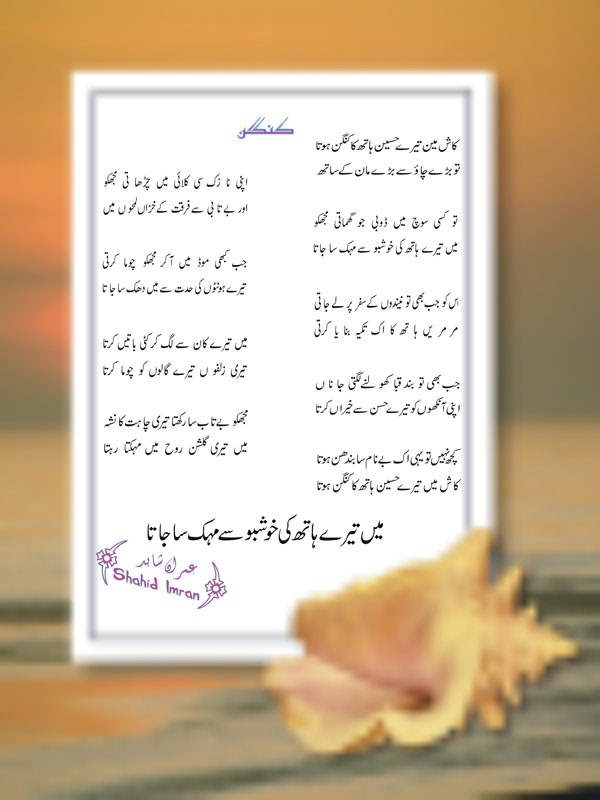 کنگن
کاش مین تیرے حسین ہاتھ کا کنگن ہوتا
تو بڑے چاؤ سے بڑے مان کے ساتھ
اپنی نا زک سی کلائی میں چڑھا تی مجھکو
اور بے تا بی سے فرقت کے خزاں لمحو ں میں
تو کسی سوچ میں ڈوبی جو گھماتی مجھکو
میں تیرے ہاتھ کی خوشبو سے مہک سا جاتا
جب کبھی موڈ میں آ کر مجھکو چوما کرتی
تیرے ہونٹوں کی حدت سے میں دھک سا جا تا
اس کو جب بھی تو نیندوں کے سفر پر لے جاتی
مر مر یں ہا تھ کا اک تکیہ بنا یا کرتی
میں تیرے کان سے لگ کر کئی باتیں کرتا
تیری زلفو ں تیرے گالوں کو چوما کرتا
جب بھی تو بند قبا کھو لنے لگتی جا نا ں
اپنی آنکھوں کو تیرے حسن سے خیراں کرتا
مجھکو بے تاب سا رکھتا تیری چاہت کا نشہ
میں تیری گلشن روح میں مہکتا رہتا
کچھ نہیں تو یہی اک بے نام سا بندھن ہوتا
کا ش میں تیرے حسین ہاتھ کا کنگن ہوتا
میں تیرے ہاتھ کی خوشبو سے مہک سا جاتا
عمران شاہد
Shahid Imran